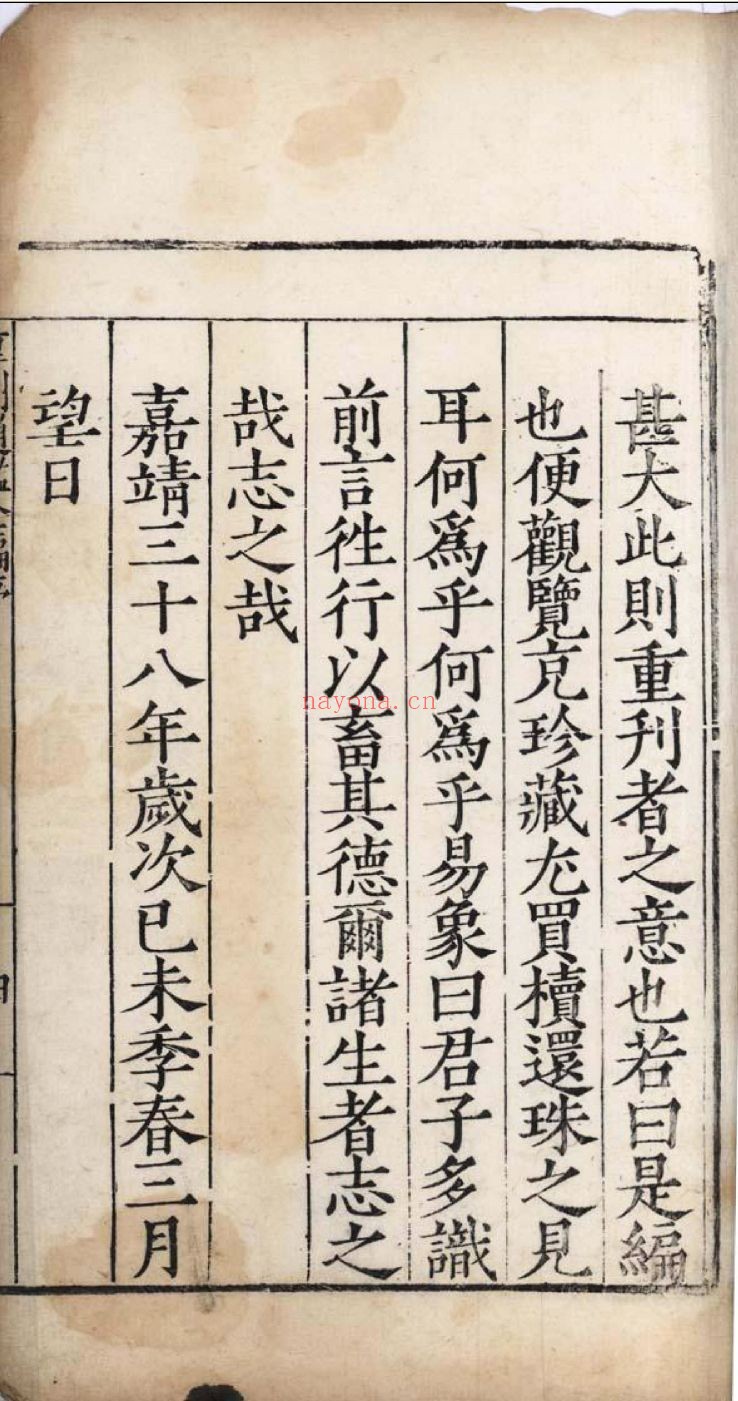 甚大此則重刊者之意也若曰是編
也便觀覽充珍藏尤買櫝還珠之見
耳何爲乎何爲乎易象曰君子多識
前言徃行以畜其德爾諸生者志之
哉志之哉
嘉靖三十八年歲次己未季春三月
望日
nayona.cn